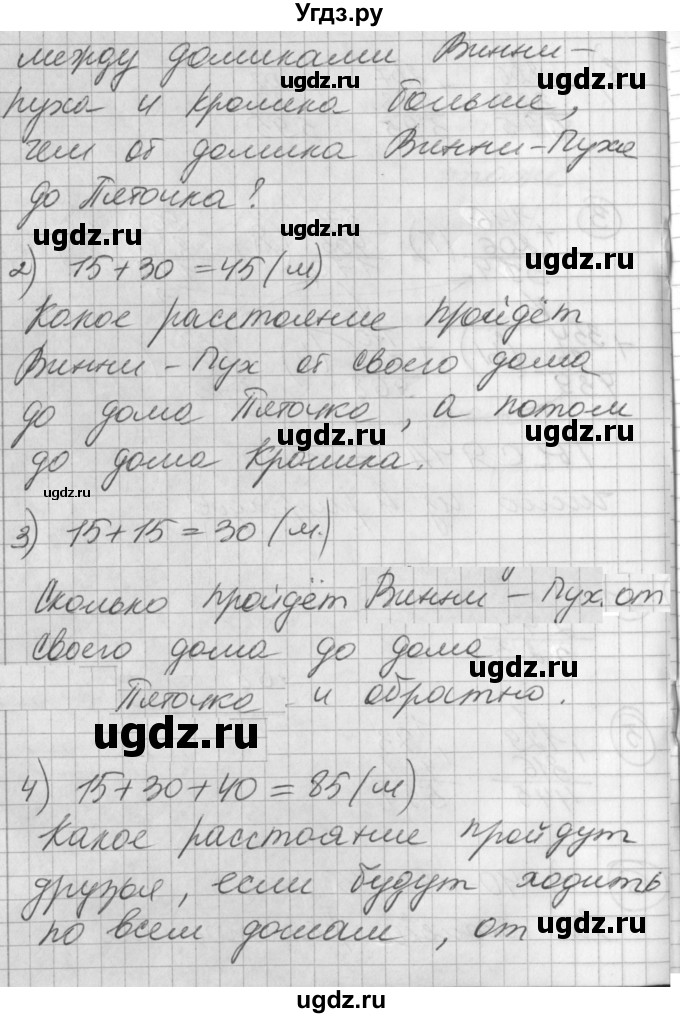 Угдз.ру
между домиками Винни-
ugdz.ru ugdz.ru
пуха и Кролика больше,
чем от домика Винни-Пуха
до Пяточка?
ugdz.ru ugdz.ru
ugdz.ru
2) 15+30=45(м)
Какое расстояние пройдёт
ugdz.ru ugdz.ru
Винни-Пух от своего дома
до дома Пяточка, а потом
ugdz.ru ugdz.ru
до дома Кролика.
ugdz.ru
3) 15+15=30(м.)
Сколько пройдёт Винни"-Пух. от
своего дома до дома
ugdz.ru
Пяточка и обратно.
ugdz.ru
4) 15+30+40=85(м)
Какое расстояние пройдут
друзья, если будут ходить
по всем домам, от
ugdz.ru
ugdz.ru
ugdz.ru